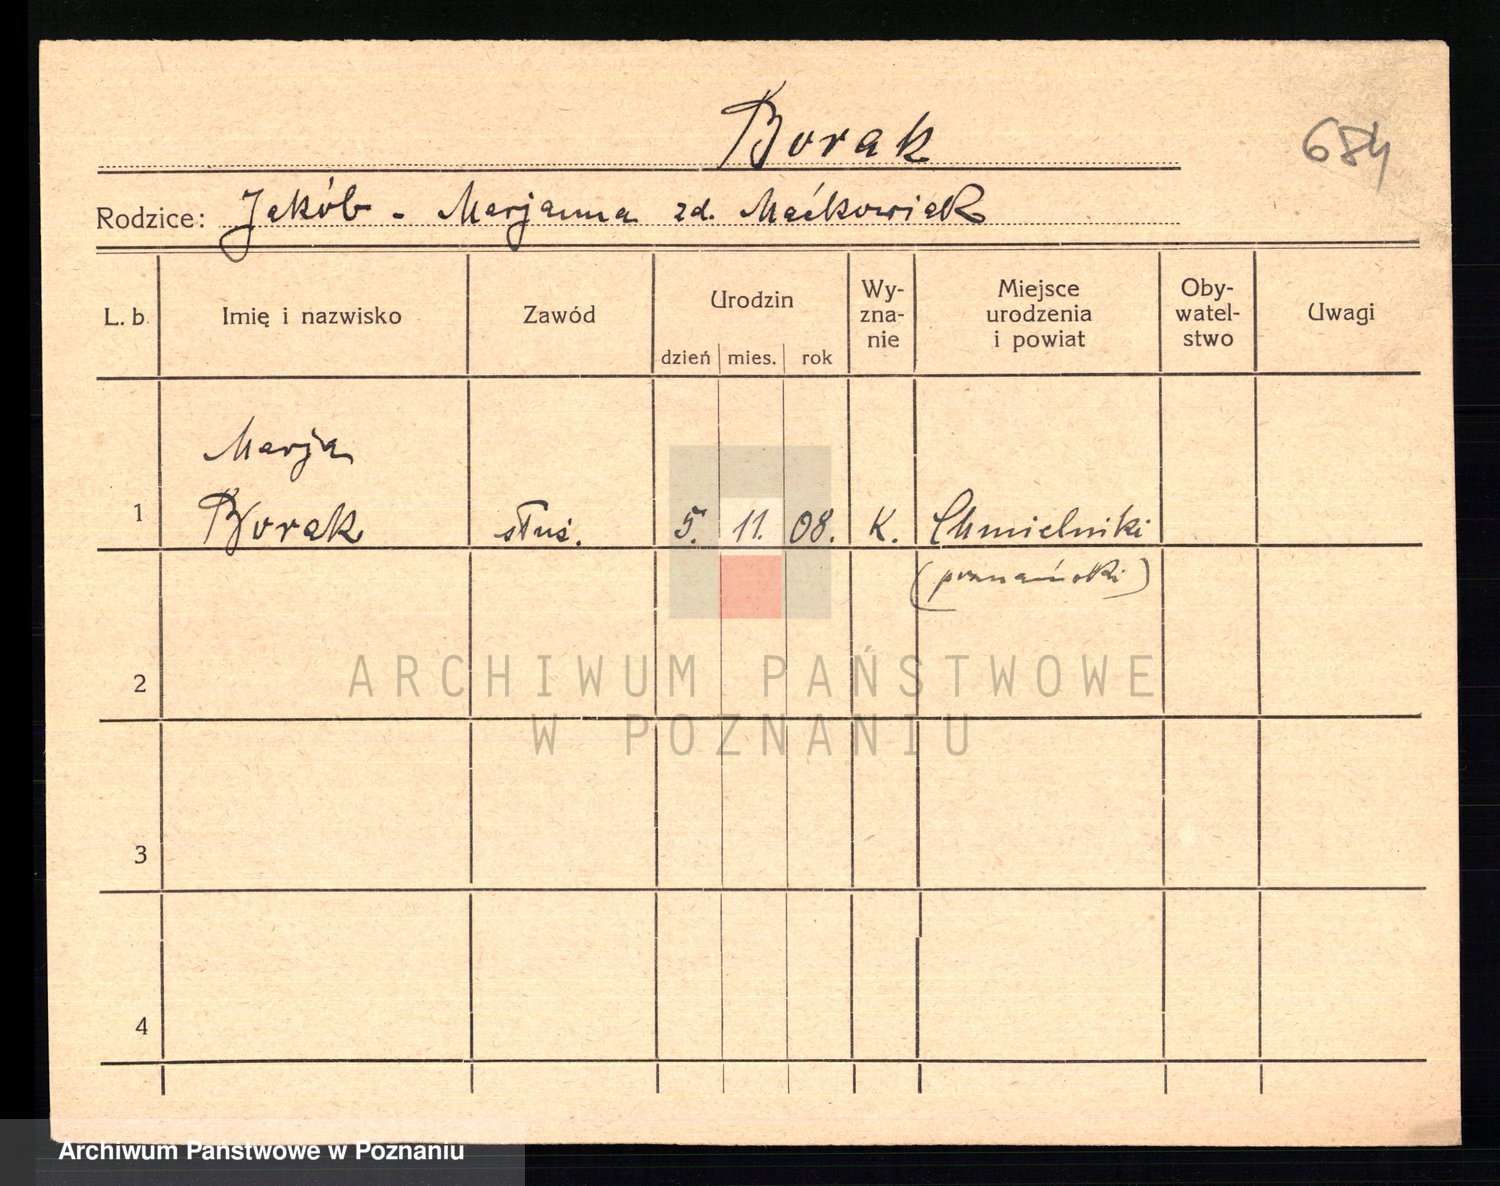 Borak
684
Rodzice: Jakób - Marjanna zd. Maćkowiak
L. b. Imię i nazwisko Zawód Urodzin dzień mies. rok Wy-zna-nie Miejsce urodzenia i powiat Oby-watel-stwo Uwagi
Marja
1 Borak służ. 5. 11. 08. K. Chmielniki
(poznański)
2
ARCHIWUM PAŃSTWOWE
W POZNANIU
3
4
Archiwum Państwowe w Poznaniu